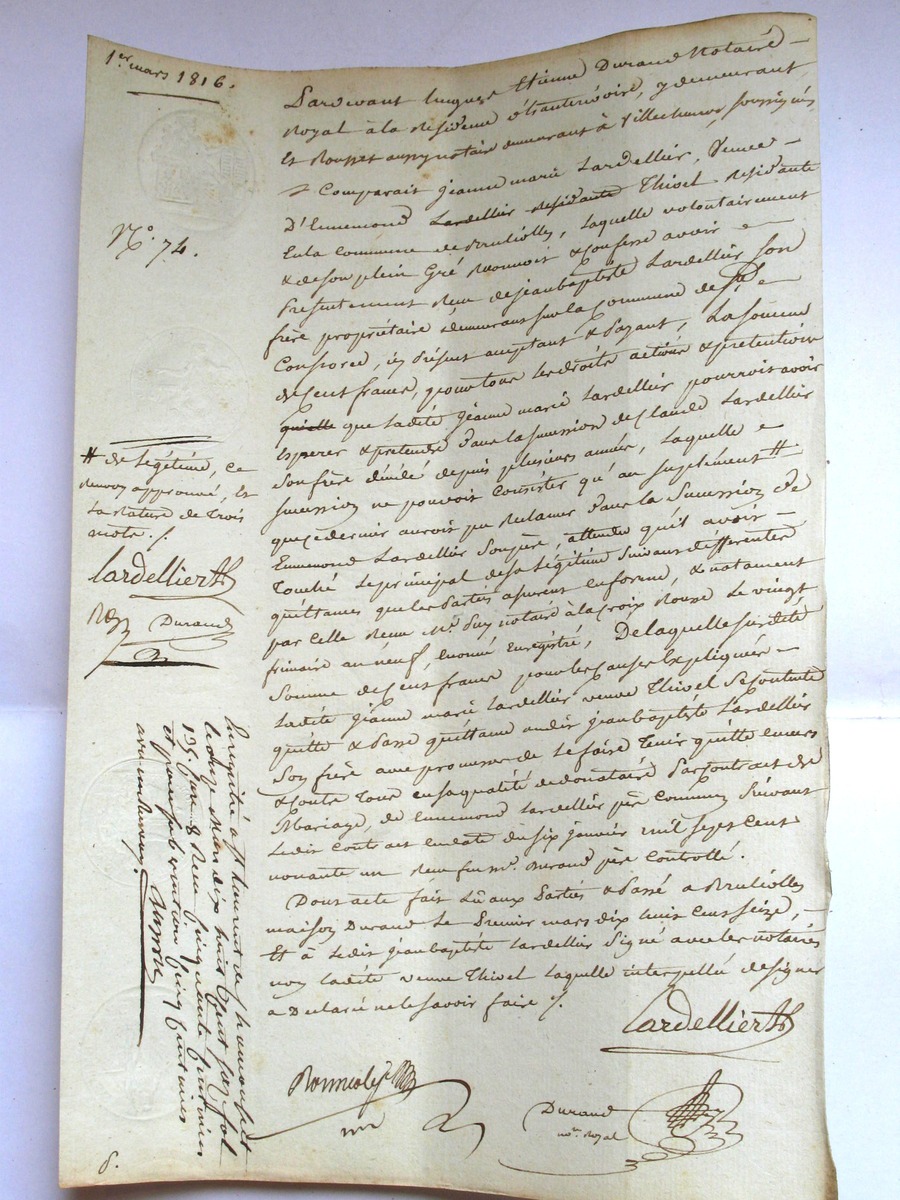 1er mars 1816.
Pardevant Etienne Durand Notaire
Royal à la Residence d'hauterivoire, y demeurant
et Rousset aussy notaire demeurant à Villechenève, soussignés
Comparait jeanne marie Lardellier, Veuve
D'Ennemond Lardellier Residante Thivel Residante
En la Commune de Bruliolles, laquelle volontairement
& de son plein Gré Reconnoit & Confesse avoir
Presentement Recu de jean baptiste Lardellier son
frère propriétaire demeurant sur la Commune de Ste
Consforce, icy présent acceptant & payant, La somme
de Cent francs, pour tous les droits actions & pretentions
qu'elle que ladite jeanne marie Lardellier pourroit avoir
Esperer & pretendre dans la succession de Claude Lardellier
son frère décédé depuis plusieurs années, laquelle
succession ne pouvoit consister qu'au supplément #
que ce dernier auroit pu Reclamer dans la Succession de
Ennemond Lardellier son père, attendu qu'il avoit
Touché le principal de sa légitime suivant differentes
quittances que les Parties assurent en forme, & notament
par celle Recue Me. Puy notaire à la Croix Rousse le vingt
frimaire an neuf, Enregistré, De laquelle susdite
somme de Cent francs pour les Causes Expliquées
ladite jeanne marie Lardellier veuve Thivel se contente
quitte & passe quittance audit jean baptiste Lardellier
son frère avec promesse de le faire Tenir quitte envers
& contre Tous en sa qualité de donataire Par contrat de
Mariage, de Ennemond Lardellier père Commun Suivant
Ledit Contrat en date du six janvier mil sept Cent
nonante un Recu feu Me. Durand père Controllé.
Dont acte fait Lû aux Parties & Passé a Bruliolles
maison Durand Le Premier mars dix huit Cent seize,
Et à Ledit jean baptiste Lardellier Signé avec les notaires
non ladite veuve Thivel laquelle interpellée de signer
a Declaré ne le savoir faire ./.
Lardellier
Durand
nore. Royal
No. 74.
# de légitime, ce
Renvoy approuvé, Et
la Rature de Trois
mots ./.
Lardellier
Durand
Enregistré a St. Laurent de Chamousset
le onze Mars dix huit Cent seize fol
135. Recu Cinquante Centimes
et pour subvention Cinq Centimes
8.